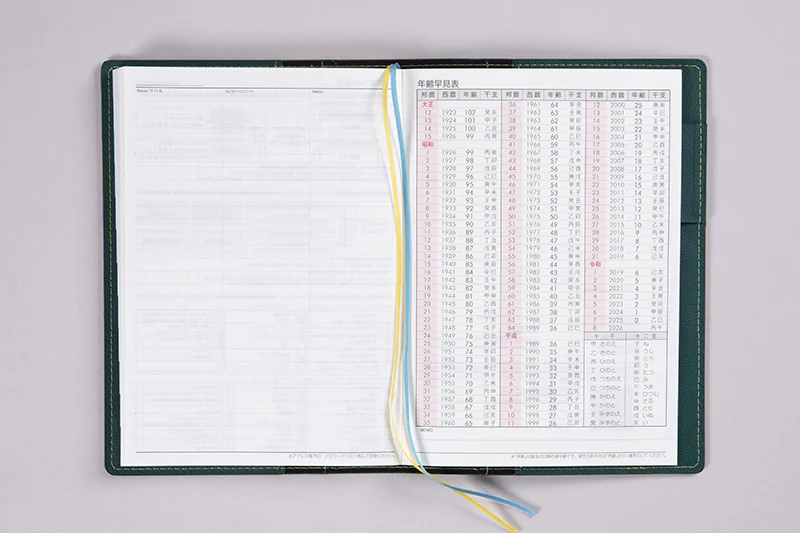 Name/サイト名 Memo
年齢早見表
邦暦 西暦 年齢 干支
大正
12 1923 102 癸亥
13 1924 101 甲子
14 1925 100 乙丑
15 1926 99 丙寅
昭和
1 1926 99 丙寅
2 1927 98 丁卯
3 1928 97 戊辰
4 1929 96 己巳
5 1930 95 庚午
6 1931 94 辛未
7 1932 93 壬申
8 1933 92 癸酉
9 1934 91 甲戌
10 1935 90 乙亥
11 1936 89 丙子
12 1937 88 丁丑
13 1938 87 戊寅
14 1939 86 己卯
15 1940 85 庚辰
16 1941 84 辛巳
17 1942 83 壬午
18 1943 82 癸未
19 1944 81 甲申
20 1945 80 乙酉
21 1946 79 丙戌
22 1947 78 丁亥
23 1948 77 戊子
24 1949 76 己丑
25 1950 75 庚寅
26 1951 74 辛卯
27 1952 73 壬辰
28 1953 72 癸巳
29 1954 71 甲午
30 1955 70 乙未
31 1956 69 丙申
32 1957 68 丁酉
33 1958 67 戊戌
34 1959 66 己亥
35 1960 65 庚子
邦暦 西暦 年齢 干支
36 1961 64 辛丑
37 1962 63 壬寅
38 1963 62 癸卯
39 1964 61 甲辰
40 1965 60 乙巳
41 1966 59 丙午
42 1967 58 丁未
43 1968 57 戊申
44 1969 56 己酉
45 1970 55 庚戌
46 1971 54 辛亥
47 1972 53 壬子
48 1973 52 癸丑
49 1974 51 甲寅
50 1975 50 乙卯
51 1976 49 丙辰
52 1977 48 丁巳
53 1978 47 戊午
54 1979 46 己未
55 1980 45 庚申
56 1981 44 辛酉
57 1982 43 壬戌
58 1983 42 癸亥
59 1984 41 甲子
60 1985 40 乙丑
61 1986 39 丙寅
62 1987 38 丁卯
63 1988 37 戊辰
64 1989 36 己巳
平成
1 1989 36 己巳
2 1990 35 庚午
3 1991 34 辛未
4 1992 33 壬申
5 1993 32 癸酉
6 1994 31 甲戌
7 1995 30 乙亥
8 1996 29 丙子
9 1997 28 丁丑
10 1998 27 戊寅
11 1999 26 己卯
邦暦 西暦 年齢 干支
12 2000 25 庚辰
13 2001 24 辛巳
14 2002 23 壬午
15 2003 22 癸未
16 2004 21 甲申
17 2005 20 乙酉
18 2006 19 丙戌
19 2007 18 丁亥
20 2008 17 戊子
21 2009 16 己丑
22 2010 15 庚寅
23 2011 14 辛卯
24 2012 13 壬辰
25 2013 12 癸巳
26 2014 11 甲午
27 2015 10 乙未
28 2016 9 丙申
29 2017 8 丁酉
30 2018 7 戊戌
31 2019 6 己亥
令和
1 2019 6 己亥
2 2020 5 庚子
3 2021 4 辛丑
4 2022 3 壬寅
5 2023 2 癸卯
6 2024 1 甲辰
7 2025 0 乙巳
8 2026 丙午
十干
甲 きのえ
乙 きのと
丙 ひのえ
丁 ひのと
戊 つちのえ
己 つちのと
庚 かのえ
辛 かのと
壬 みずのえ
癸 みずのと
十二支
子 ね
丑 うし
寅 とら
卯 う
辰 たつ
巳 み
午 うま
未 ひつじ
申 さる
酉 とり
戌 いぬ
亥 い
MEMO